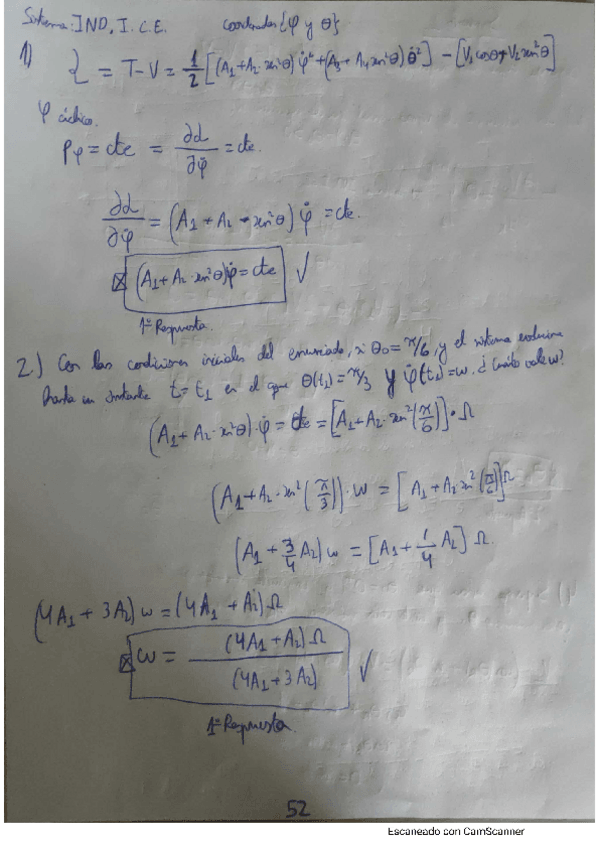 Sistema: IND, I.C.E. coordenadas {φ y θ}
1) L = T-V = 1/2 [(A1+A2·sen²θ) φ̇² + (A3+A4 sen²θ) θ̇²] - [V1 cosθ + V2 sen²θ]
φ cíclica.
Pφ = cte = ∂L/∂φ̇ = cte.
∂L/∂φ̇ = (A1 + A2 · sen²θ) φ̇ = cte.
(A1+A2·sen²θ)φ̇ = cte ✓
1ª Respuesta.
2.) Con las condiciones iniciales del enunciado, si θ0 = π/6, y el sistema evoluciona
hasta un instante t = t1 en el que θ(t1) = π/3 y φ̇(t1) = w. ¿Cuánto vale w?
(A1 + A2·sen²θ)·φ̇ = cte = [A1+A2·sen²(π/6)]·Ω
(A1+A2·sen²(π/3))·w = [A1+A2 sen²(π/6)]Ω
(A1 + 3/4 A2) w = [A1 + 1/4 A2] Ω.
(4A1 + 3A2) w = (4A1 + A2) Ω
w = (4A1+A2) Ω / (4A1+3A2) ✓
1ª Respuesta.
52
Escaneado con CamScanner